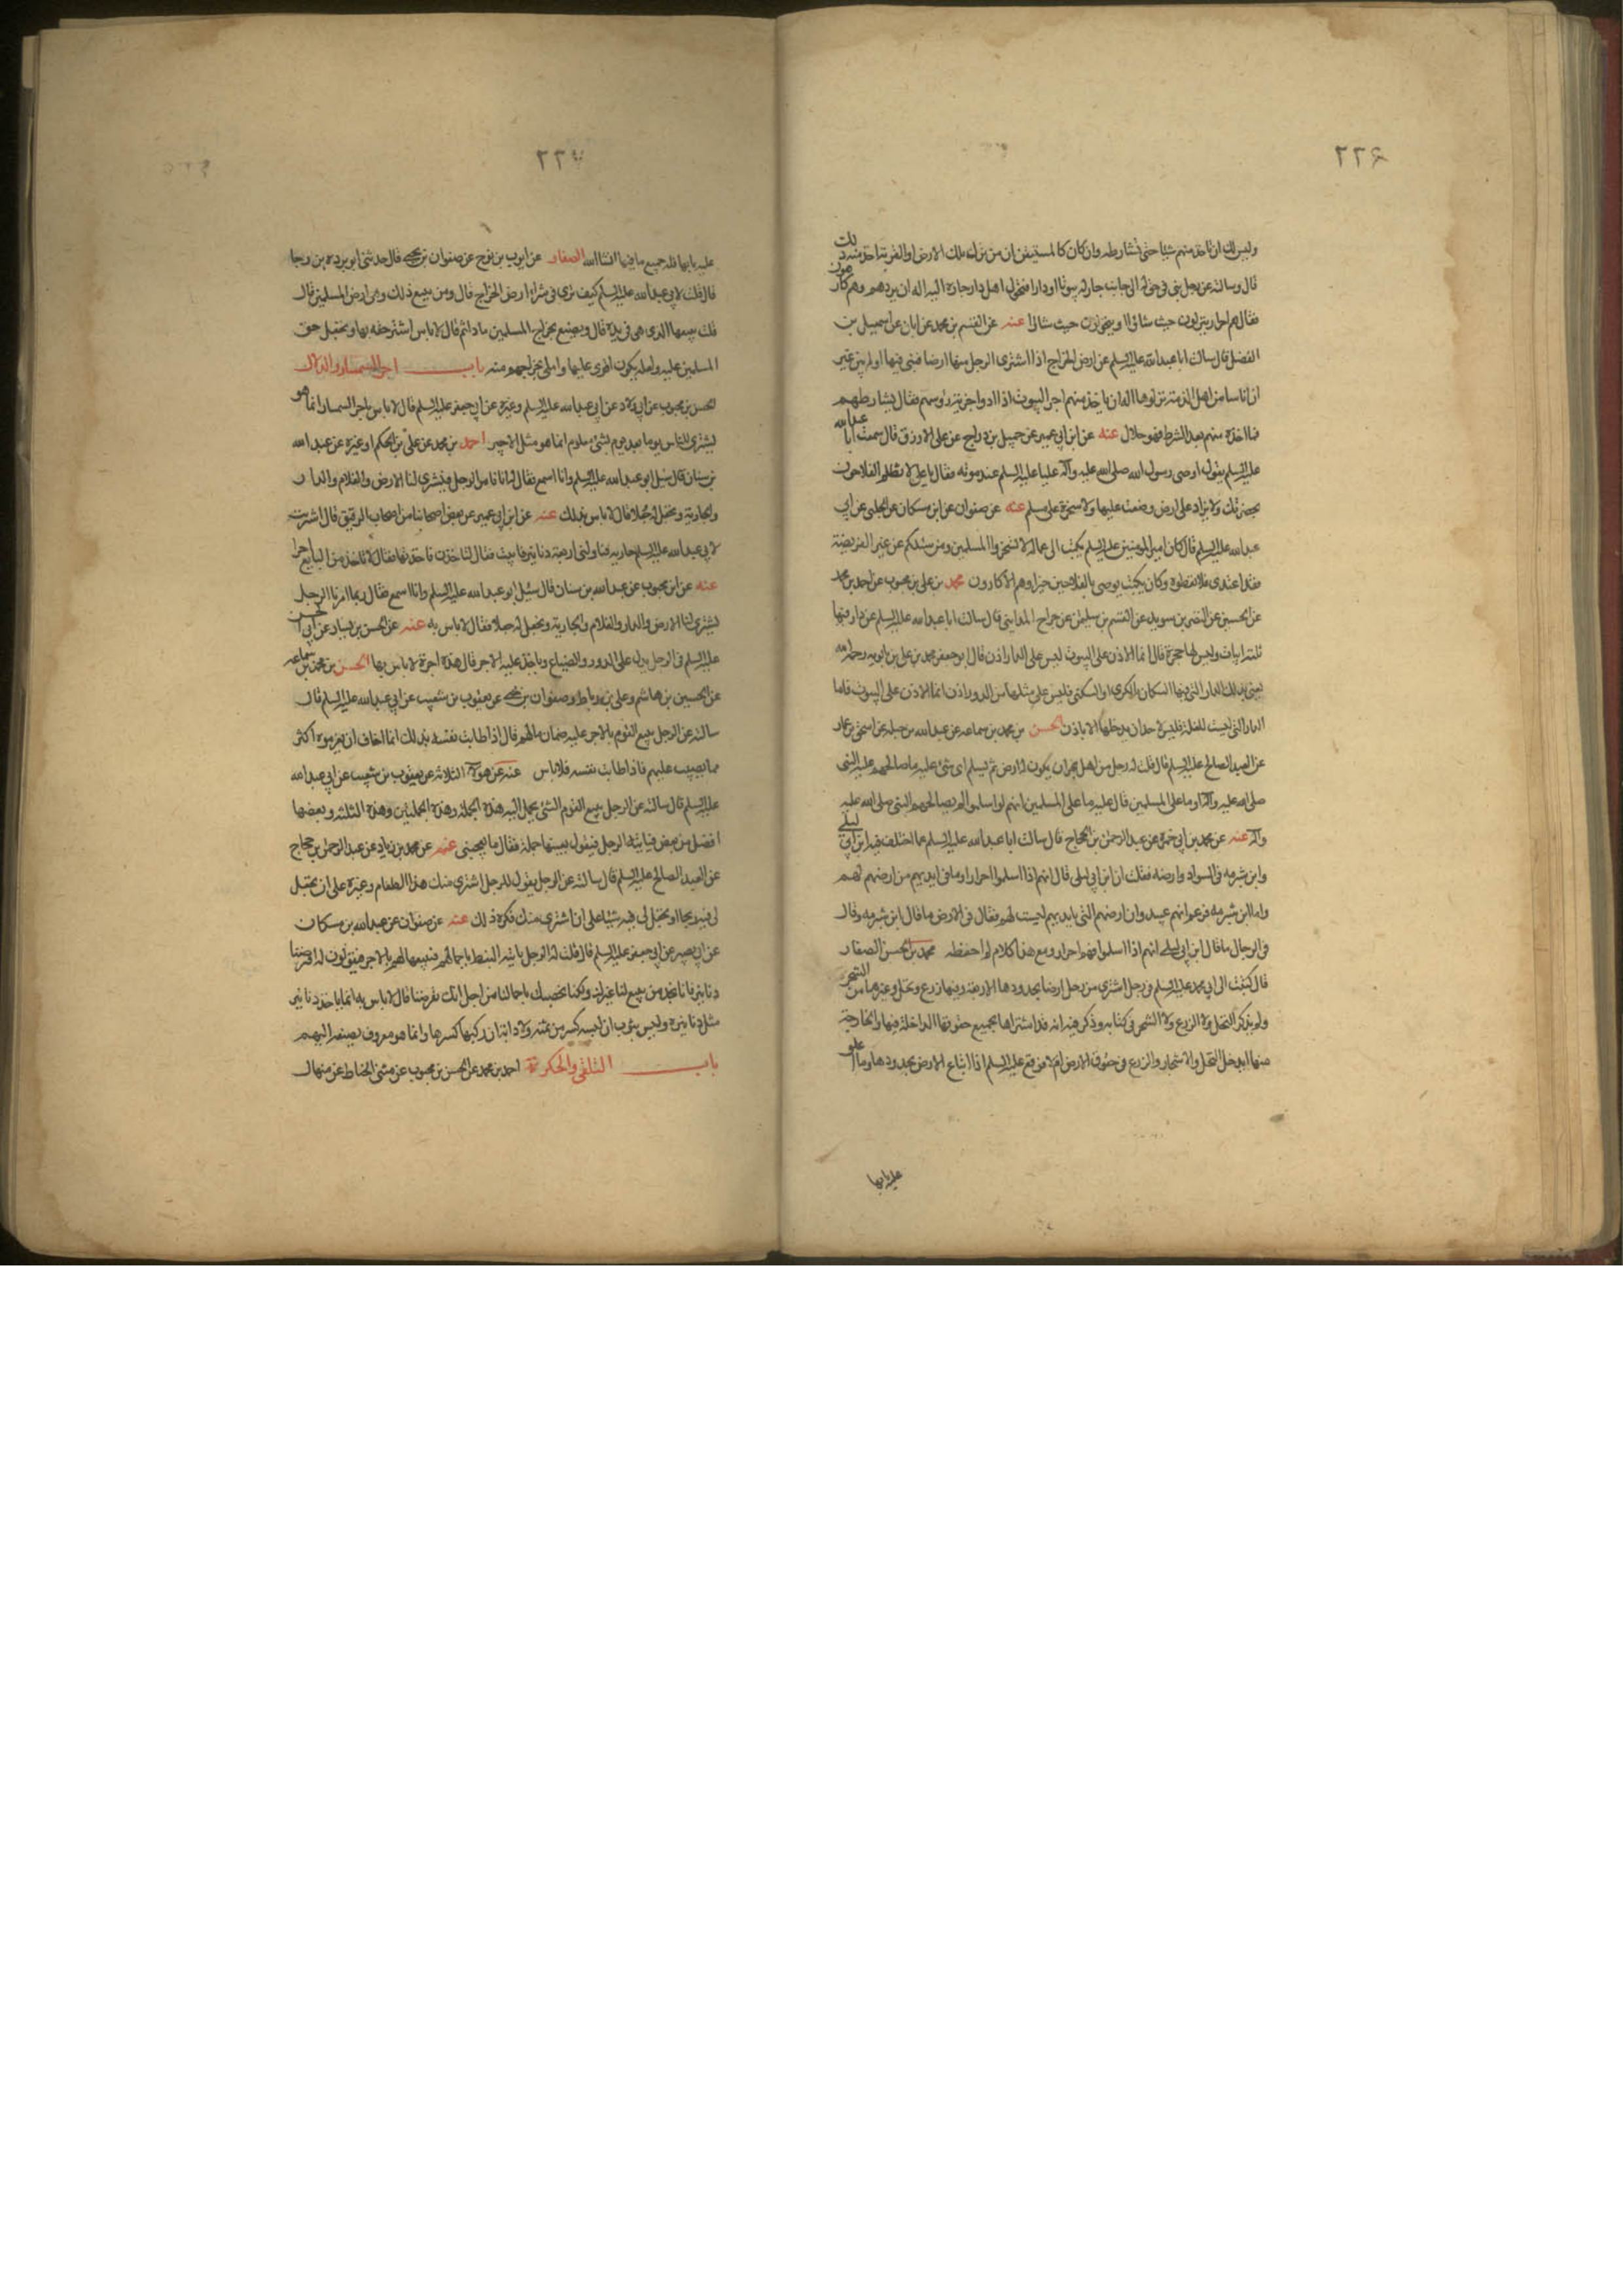 ٢٢٤
وليس لك ان تاخذ منهم شيئا حتى تشارطهم وان كان كالمستيقن ان من نزل تلك الارض او القرية اخذ منه ذلك
قال وسالته عن رجل بنى في حق له الى جانب جار له بيوتا او دارا فتحول اهل دار جاره اليه اله ان يردهم وهم كارهون
فقال هم احرار ينزلون حيث شاؤا ويتحولون حيث شاؤا عنه عن القسم بن محمد عن ابان عن اسمعيل بن
الفضل قال سالت ابا عبد الله عليه السلم عن ارض الخراج اذا اشترى الرجل منها ارضا فبنى فيها او لم يبن غير
ان اناسا من اهل الذمة نزلوها اله ان ياخذ منهم اجر البيوت اذا ادوا جزية رؤسهم فقال يشارطهم
فما اخذه منهم بعد الشرط فهو حلال عنه عن ابن ابي عمير عن جميل بن دراج عن علي الازرق قال سمعت ابا عبد الله
عليه السلم يقول اوصى رسول الله صلى الله عليه وآله عليا عليه السلم عند موته فقال يا علي لا يظلم الفلاحون
بحضرتك ولا يزاد على ارض وضعت عليها ولا سخرة على مسلم عنه عن صفوان عن ابن مسكان عن الحلبي عن ابي
عبد الله عليه السلم قال كان امير المومنين عليه السلم يكتب الى عماله لا تسخروا المسلمين ومن سئلكم عن غير الفريضة
فقد اعتدى فلا تعطوه وكان يكتب يوصي بالفلاحين خيرا وهم الاكارون محمد بن علي بن محبوب عن احمد بن محمد
عن الحسين عن النضر بن سويد عن القسم بن سليمن عن جراح المدايني قال سالت ابا عبد الله عليه السلم عن دار فيها
ثلثة ابيات وليس لها حجرة قال انما الاذن على البيوت ليس على الدار اذن قال ابو جعفر محمد بن علي بن بابويه رحمه الله
يعني بذلك الدار التي فيها السكان بالكرى او السكنى فليس على مثلها من الدور اذن انما الاذن على البيوت فاما
الدار التي ليست للغلة فليس لاحد ان يدخلها الا باذن الحسن بن محمد بن سماعه عن عبد الله بن جبله عن اسحق بن عمار
عن العبد الصالح عليه السلم قال قلت له رجل من اهل نجران يكون له ارض ثم يسلم اي شئ عليه ما صالحهم عليه النبي
صلى الله عليه وآله او ما على المسلمين قال عليه ما على المسلمين انهم لو اسلموا لم يصالحهم النبي صلى الله عليه
وآله عنه عن محمد بن ابي حمزه عن عبد الرحمن بن الحجاج قال سالت ابا عبد الله عليه السلم عما اختلف فيه ابن ابي ليلى
وابن شبرمه في السواد وارضه فقلت ان ابن ابي ليلى قال انهم اذا اسلموا احرار وما في ايديهم من ارضهم لهم
واما ابن شبرمه فزعم انهم عبيد وان ارضهم التي بايديهم ليست لهم فقال في الارض ما قال ابن شبرمه وقال
في الرجال ما قال ابن ابي ليلى انهم اذا اسلموا فهم احرار ومع هذا كلام لم احفظه محمد بن الحسن الصفار
قال كتبت الى ابي محمد عليه السلم في رجل اشترى من رجل ارضا بحدودها الاربعة وفيها زرع ونخل وغيرهما من الشجر
ولم يذكر النخل ولا الزرع ولا الشجر في كتابه وذكر فيه انه قد اشتراها بجميع حقوقها الداخلة فيها والخارجة
منها ايدخل النخل والاشجار والزرع في حقوق الارض ام لا فوقع عليه السلم اذا ابتاع الارض بحدودها وما اغلق
عليه بابها
٢٢٥
عليه بابها فله جميع ما فيها انشا الله الصفار عن ايوب بن نوح عن صفوان بن يحيى قال حدثني ابو برده بن رجا
قال قلت لابي عبد الله عليه السلم كيف ترى في شراء ارض الخراج قال ومن يبيع ذلك وهي ارض المسلمين قال
قلت يبيعها الذي هي في يده قال ويصنع بخراج المسلمين ماذا ثم قال لا باس اشتر حقه بها ويحتمل حق
المسلمين عليه ولعله يكون اقوى عليها واملى بخراجهم منه باب اجر السمسار والدلال
الحسن بن محبوب عن ابي ولاد عن ابي عبد الله عليه السلم وغيره عن ابي جعفر عليه السلم قال لا باس باجر السمسار انما هو
يشتري للناس يوما بعد يوم بشئ معلوم انما هو مثل الاجير احمد بن محمد عن علي بن الحكم او غيره عن عبد الله
بن سنان قال سئل ابو عبد الله عليه السلم وانا اسمع فقال له انا نامر الرجل فيشتري لنا الارض والغلام والدار
والجارية ونجعل له جعلا قال لا باس بذلك عنه عن ابن ابي عمير عن بعض اصحابنا من اصحاب الرقيق قال اشتريت
لابي عبد الله عليه السلم جاريه فناولني اربعة دنانير فابيت فقال لتاخذن فاخذتها فقال لا تاخذ من البايع اجرا
عنه عن ابن محبوب عن عبد الله بن سنان قال سئل ابو عبد الله عليه السلم وانا اسمع فقال ربما امرنا الرجل
يشتري لنا الارض والدار والغلام والجارية ونجعل له جعلا فقال لا باس به عنه عن الحسن بن بسار عن ابي الحسن
عليه السلم في الرجل يدل على الدور والضياع وياخذ عليه الاجر قال هذه اجرة لا باس بها الحسن بن محمد بن سماعه
عن الحسين بن هاشم وعلي بن رباط وصفوان بن يحيى عن يعقوب بن شعيب عن ابي عبد الله عليه السلم قال
سالته عن الرجل يبيع القوم بالاجر عليه ضمان مالهم قال اذا طابت نفسه بذلك انما اخاف ان يغرموه اكثر
مما يصيب عليهم فاذا طابت نفسه فلا باس عنه عن هولاء الثلاثة عن يعقوب بن شعيب عن ابي عبد الله
عليه السلم قال سالته عن الرجل يبيع القوم الشئ يحمل اليه هذه الجملة وهذه الجملتين وهذه الثلثة وبعضها
افضل من بعض فياتيه الرجل فيقول بعنيها جملة فقال ما يعجبني عنه عن محمد بن زياد عن عبد الرحمن بن حجاج
عن العبد الصالح عليه السلم قال سالته عن الرجل يقول للرجل اشتري منك هذا الطعام وغيره على ان تجعل
لي فيه ربحا او تجعل لي فيه شيئا على ان اشتري منك فكره ذلك عنه عن صفوان عن عبد الله بن مسكان
عن ابي بصير عن ابي جعفر عليه السلم قال قلت له الرجل ياتيه النبط باحمالهم فيبيعها لهم بالاجر فيقولون له اقرضنا
دنانير فانا نجد من يبيع لنا غيرك ولكنا نخصك باحمالنا من اجل انك تقرضنا قال لا باس به انما ياخذ دنانير
مثل دنانيره وليس بثوب ان لبسه كسر من ثمنه ولا دابة ان ركبها كسرها وانما هو معروف يصنعه اليهم
باب التلقي والحكرة احمد بن محمد عن الحسن بن محبوب عن مثنى الحناط عن منهال